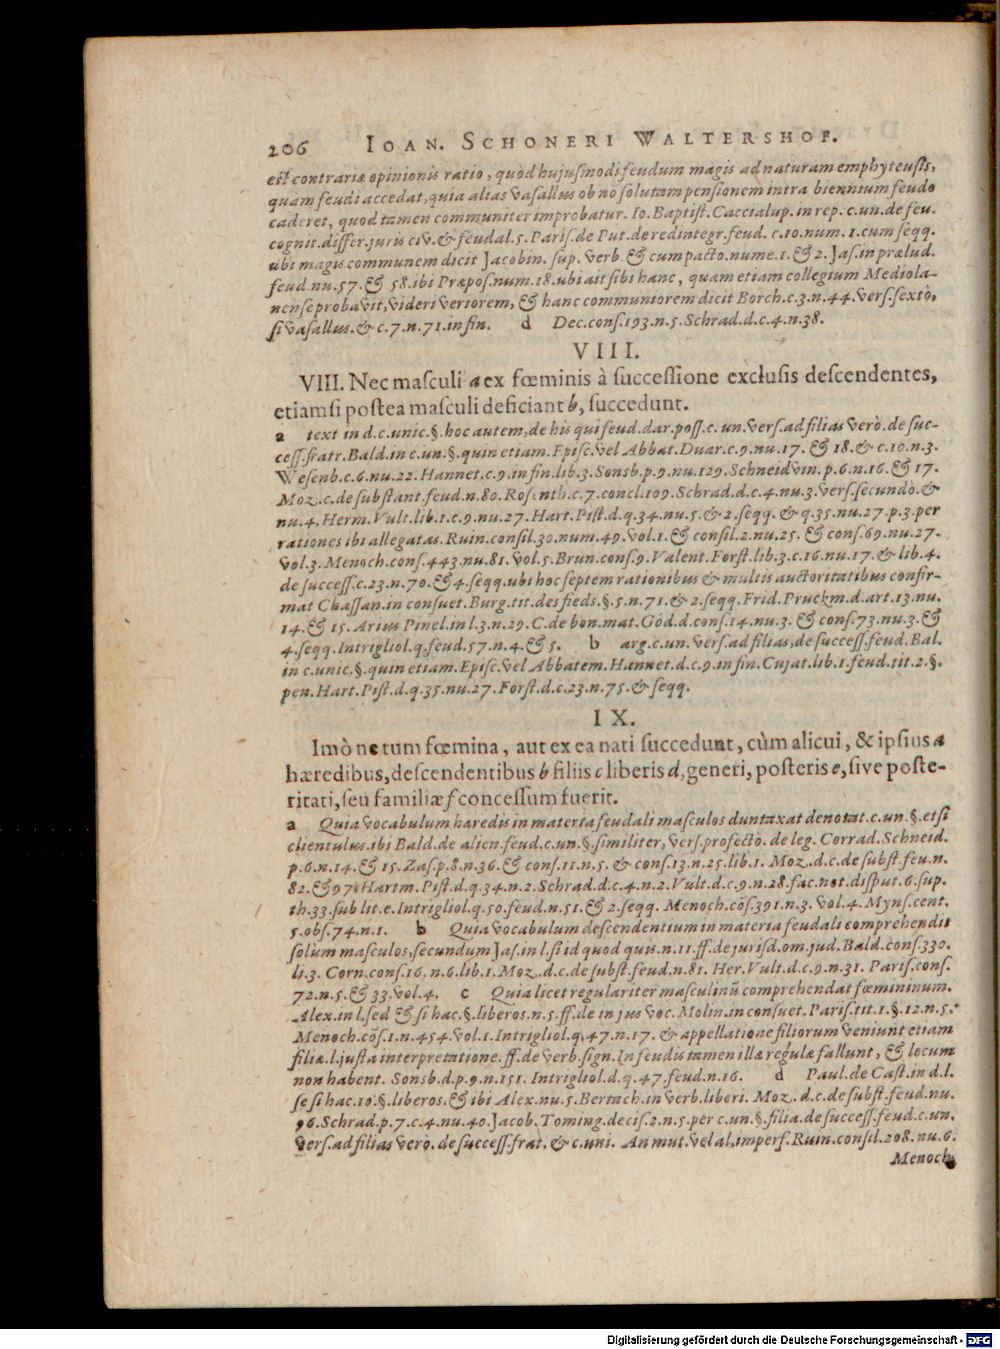 206 IOAN. SCHONERI WALTERSHOF.
est contrariæ opinionis ratio, quòd hujusmodi feudum magis ad naturam emphyteusis,
quam feudi accedat, quia alias vasallus ob nō solutam pensionem intra biennium feudo
caderet, quod tamen communiter improbatur. Io. Baptist. Caccialup. in rep. c. un. de feu.
cognit. differ. juris civ. & feudal. 5. Paris. de Put. de redintegr. feud. c. 10. num. 1. cum seqq.
ubi magis communem dicit Jacobin. sup. verb. & cum pacto. nume. 1. & 2. Jas. in prælud.
feud. nu. 57. & 58. ibi Præpos. num. 18. ubi ait sibi hanc, quam etiam collegium Mediola-
nense probavit, videri veriorem, & hanc communiorem dicit Borch. c. 3. n. 44. vers. sextò,
si vasallus. & c. 7. n. 71. in fin. d Dec. cons. 193. n. 5. Schrad. d. c. 4. n. 38.
VIII.
VIII. Nec masculi a ex fœminis à successione exclusis descendentes,
etiamsi postea masculi deficiant b, succedunt.
a text in d. c. unic. §. hoc autem, de his qui feud. dar. poss. c. un. vers. ad filias verò. de suc-
cess. fratr. Bald. in c. un. §. quin etiam. Episc. vel Abbat. Duar. c. 9. nu. 17. & 18. & c. 10. n. 3.
Wesenb. c. 6. nu. 22. Hannet. c. 9. in fin. lib. 3. Sonsb. p. 9. nu. 129. Schneidvin. p. 6. n. 16. & 17.
Moz. c. de substant. feud. n. 80. Rosenth. c. 7. concl. 109. Schrad. d. c. 4. nu. 3. vers. secundò. &
nu. 4. Herm. Vult. lib. 1. c. 9. nu. 27. Hart. Pist. d. q. 34. nu. 5. & 2. seqq. & q. 35. nu. 27. p. 3. per
rationes ibi allegatas. Ruin. consil. 30. num. 49. vol. 1. & consil. 2. nu. 25. & cons. 69. nu. 27.
vol. 3. Menoch. cons. 443. nu. 81. vol. 5. Brun. cons. 9. Valent. Forst. lib. 3. c. 16. nu. 17. & lib. 4.
de success. c. 23. n. 70. & 4. seqq. ubi hoc septem rationibus & multis auctoritatibus confir-
mat Chassan. in consuet. Burg. tit. des fieds. §. 5. n. 71. & 2. seqq. Frid. Pruckm. d. art. 13. nu.
14. & 15. Arius Pinel. in l. 3. n. 29. C. de bon. mat. God. d. cons. 14. nu. 3. & cons. 73. nu. 3. &
4. seqq. Intrigliol. q. feud. 57. n. 4. & 5. b arg. c. un. vers. ad filias, de success. feud. Bal.
in c. unic. §. quin etiam. Episc. vel Abbatem. Hannet. d. c. 9. in fin. Cujat. lib. 1. feud. tit. 2. §.
pen. Hart. Pist. d. q. 35. nu. 27. Forst. d. c. 23. n. 75. & seqq.
IX.
Imò ne tum fœmina, aut ex ea nati succedunt, cùm alicui, & ipsius a
hæredibus, descendentibus b filiis c liberis d, generi, posteris e, sive poste-
ritati, seu familiæ f concessum fuerit.
a Quia vocabulum hæredis in materia feudali masculos duntaxat denotat. c. un. §. etsi
clientulus. ibi Bald. de alien. feud. c. un. §. similiter, vers. profectò. de leg. Corrad. Schneid.
p. 6. n. 14. & 15. Zas. p. 8. n. 36. & cons. 11. n. 5. & cons. 13. n. 25. lib. 1. Moz. d. c. de subst. feu. n.
82. & 97. Hartm. Pist. d. q. 34. n. 2. Schrad. d. c. 4. n. 2. Vult. d. c. 9. n. 28. fac. not. disput. 6. sup.
th. 33. sub lit. e. Intrigliol. q. 50. feud. n. 51. & 2. seqq. Menoch. cōs. 391. n. 3. vol. 4. Myns. cent.
5. obs. 74. n. 1. b Quia vocabulum descendentium in materia feudali comprehendit
solùm masculos, secundum Jas. in l. si id quod quis. n. 11. ff. de jurisd. om. jud. Bald. cons. 330.
li. 3. Corn. cons. 16. n. 6. lib. 1. Moz. d. c. de subst. feud. n. 81. Her. Vult. d. c. 9. n. 31. Paris. cons.
72. n. 5. & 33. vol. 4. c Quia licet regulariter masculinū comprehendat fœmininum.
Alex. in l. sed & si hac. §. liberos. n. 5. ff. de in jus voc. Molin. in consuet. Paris. tit. 1. §. 12. n. 5.
Menoch. cōs. 1. n. 454. vol. 1. Intrigliol. q. 47. n. 17. & appellatione filiorum veniunt etiam
filiæ. l. justa interpretatione. ff. de verb. sign. In feudis tamen illæ regulæ fallunt, & locum
non habent. Sonsb. d. p. 9. n. 151. Intrigliol. d. q. 47. feud. n. 16. d Paul. de Cast. in d. l.
se si hac. 10. §. liberos. & ibi Alex. nu. 5. Bertach. in verb. liberi. Moz. d. c. de subst. feud. nu.
96. Schrad. p. 7. c. 4. nu. 40. Jacob. Toming. decis. 2. n. 5. per c. un. §. filia. de success. feud. c. un.
vers. ad filias verò. de success. frat. & c. uni. An mut. vel al. imperf. Ruin. consil. 208. nu. 6.
Menoch.
Digitalisierung gefördert durch die Deutsche Forschungsgemeinschaft - DFG